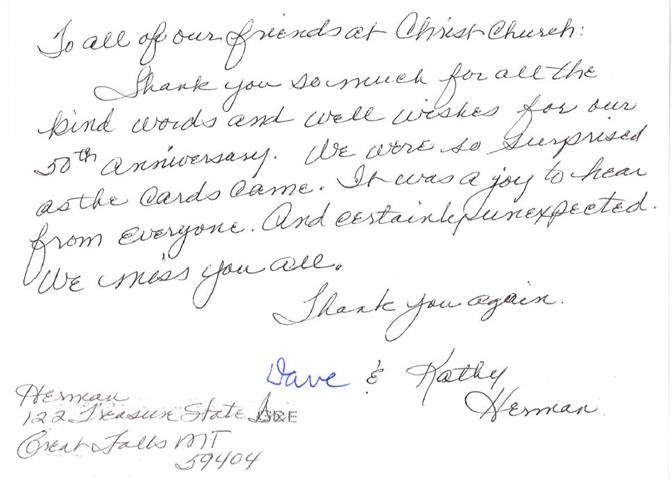 To all of our friends at Christ Church:
Thank you so much for all the
kind words and well wishes for our
50th anniversary. We were so surprised
as the cards came. It was a joy to hear
from everyone. And certainly unexpected.
We miss you all.
Thank you again.
Dave & Kathy
Herman
Herman
122 Treasure State
Great Falls MT
59404